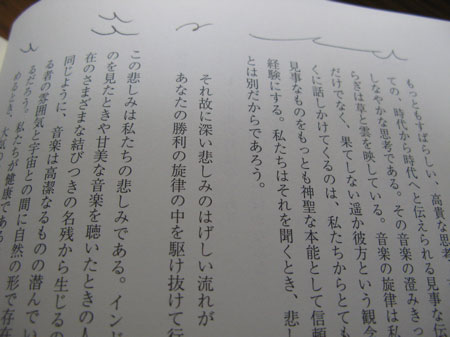 もっともすばらしい、高貴な思考
ての、時代から時代へと伝えられる見事な伝
しなやかな思考である。その音楽の澄みきっ
らぎは空と雲を映している。音楽の旋律は私
だけでなく、果てしない遥か彼方という観念
くに話しかけてくるのは、私たちからとても
見事なものをもっとも神聖な本能として信頼
経験にする。私たちはそれを聞くとき、悲し
とは別だからであろう。
それ故に深い悲しみのはげしい流れが
あなたの勝利の旋律の中を駆け抜けて行
この悲しみは私たちの悲しみである。インド
のを見たときや甘美な音楽を聴いたときの人
在のさまざまな結びつきの名残から生じるの
同じように、音楽は高潔なるものの潜んでい
る者の雰囲気と宇宙との間に自然の形で存在
るだろう。私たちが健康である
めるとき、大気の